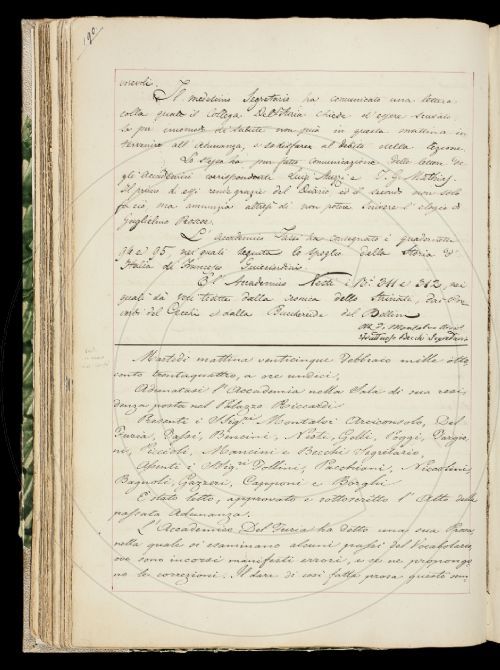 190
revoli.
Il medesimo Segretario ha comunicato una lettera
colla quale il Collega Del Furia chiede d'essere scusato,
se per incomodi di salute non può in questa mattina in-
tervenire all'Adunanza, e sodisfare al debito della lezione.
Lo stesso ha pur fatto comunicazione delle lettere de-
gli Accademici corrispondenti Luigi Muzzi e T. G. Mathias.
Il primo di essi rende grazie del Diario ed il secondo non solo
fa ciò, ma annunzia altresì di non potere scrivere l'elogio di
Guglielmo Roscoe.
L'Accademico Salvi ha consegnato i quadernetti
94 e 95, nei quali seguita lo spoglio della Storia d'
Italia di Francesco Guicciardini.
E l'Accademico Nesti i N.i 311 e 312, nei
quali dà voci tratte dalla cronica dello Strinati, dai Ri-
cordi del Cecchi e dalla Buccherede del Bellini.
A. Montalvi Arcic.
Fruttuoso Becchi Segretario
Martedì mattina venticinque Febbraio mille otto-
cento trentaquattro, a ore undici.
Adunatasi l'Accademia nella Sala di sua resi-
denza posta nel Palazzo Riccardi.
Presenti i Sig.ri Montalvi Arciconsolo, Del
Furia, Salvi, Bencini, Nesti, Gelli, Poggi, Targio-
ni, Piccioli, Mancini e Becchi Segretario.
Assenti i Sig.ri Follini, Pacchiani, Niccolini,
Bagnoli, Gazzeri, Capponi e Borghi.
È stato letto, approvato e sottoscritto l'Atto della
passata Adunanza.
L'Accademico Del Furia ha detto una sua Prosa,
nella quale si esaminano alcuni passi del Vocabolario,
ove sono incorsi manifesti errori, e se ne propongo-
no le correzioni. Il dare di così fatta prosa questo sun-